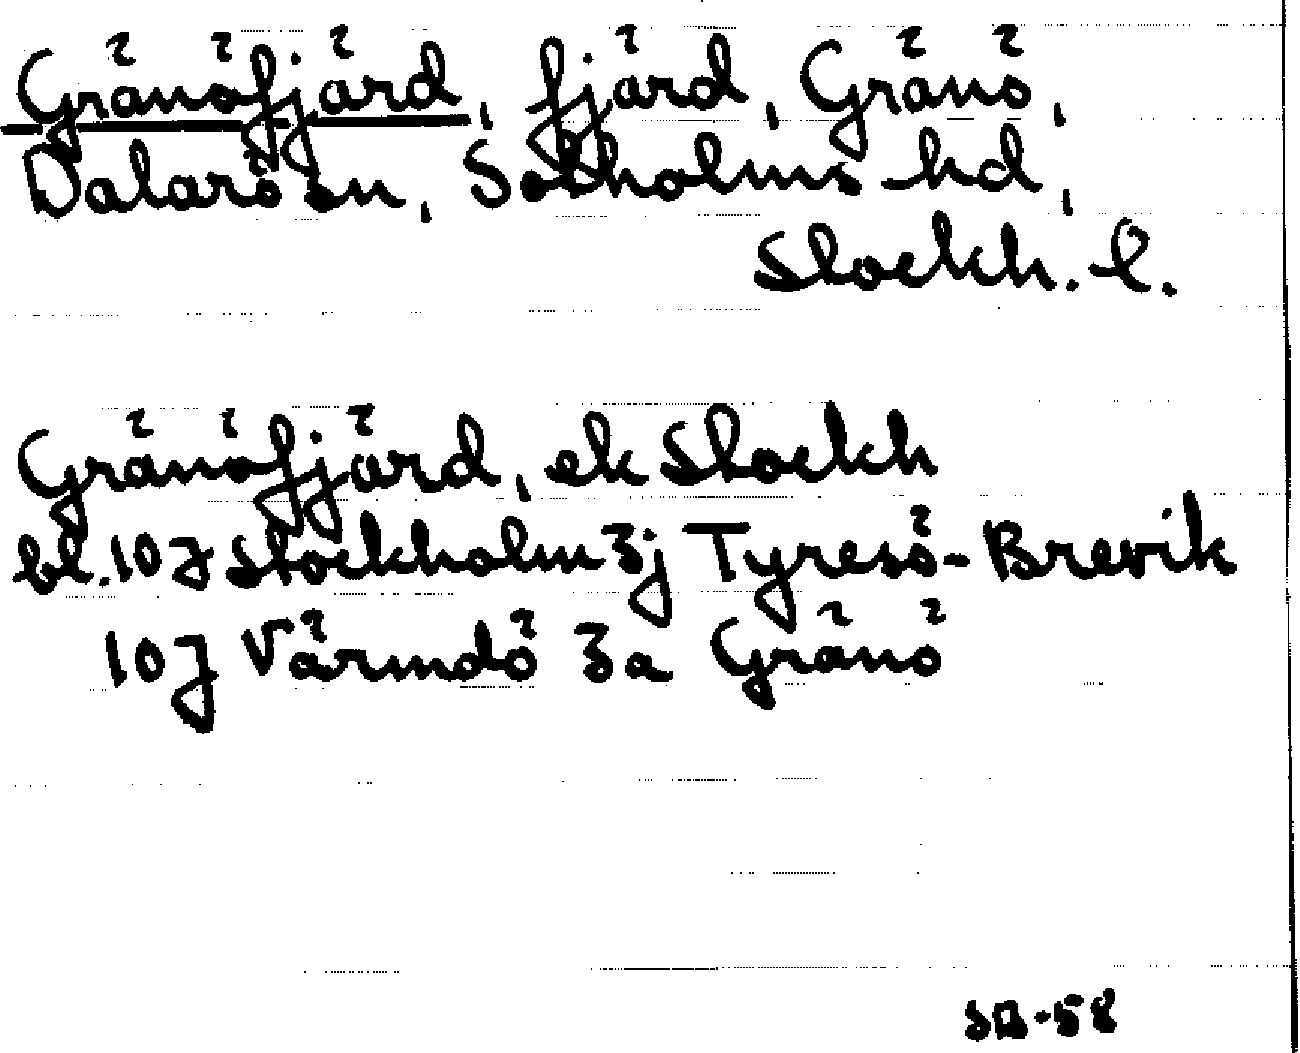 Gränöfjärd, fjärd, Gränö,
Dalarö sn, Sotholms hd,
Stockh. l.
Gränöfjärd, ek Stockh
bl. 10J Stockholm 3j Tyresö-Brevik
10J Värmdö 3a Gränö